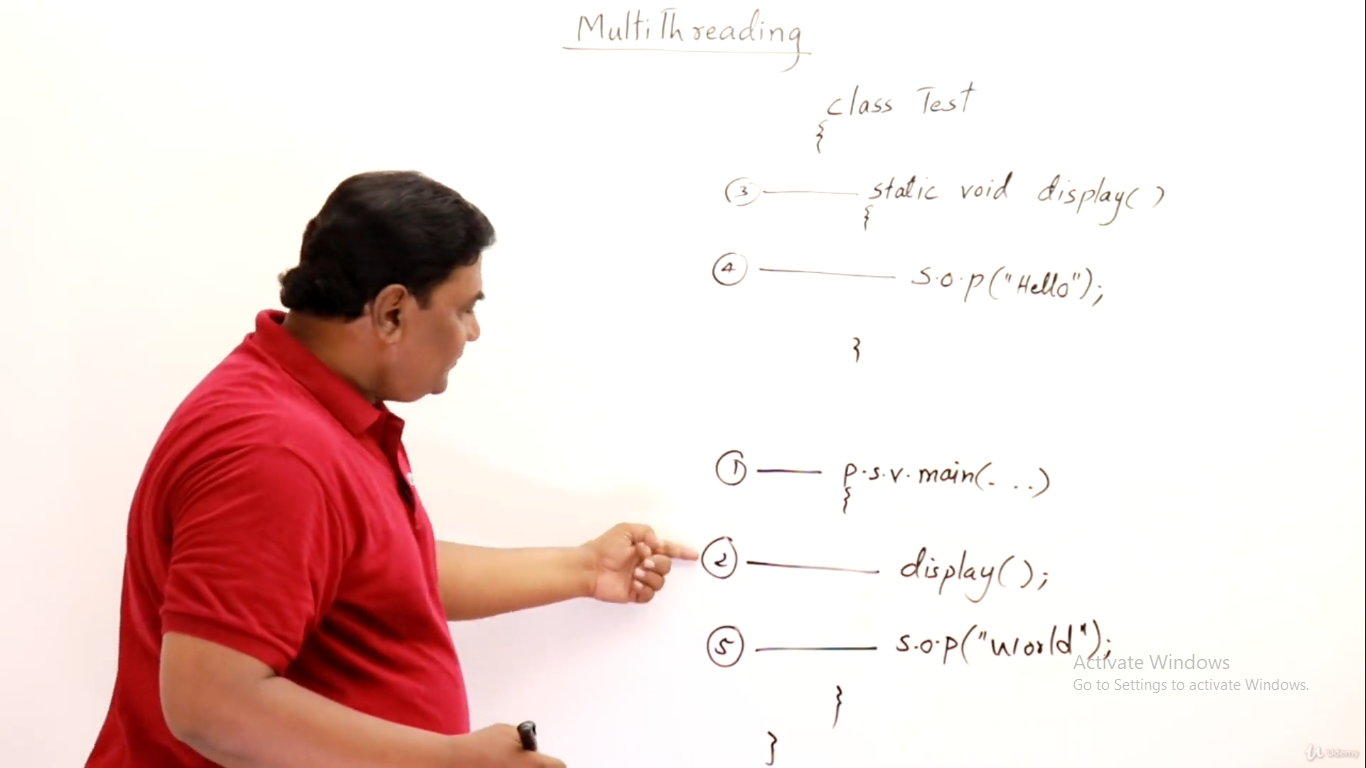 MultiThreading
class Test
{
3 static void display()
{
4 s.o.p("Hello");
}
1 p.s.v.main(. ..)
{
2 display();
5 s.o.p("World");
}
}
Activate Windows
Go to Settings to activate Windows.
Udemy